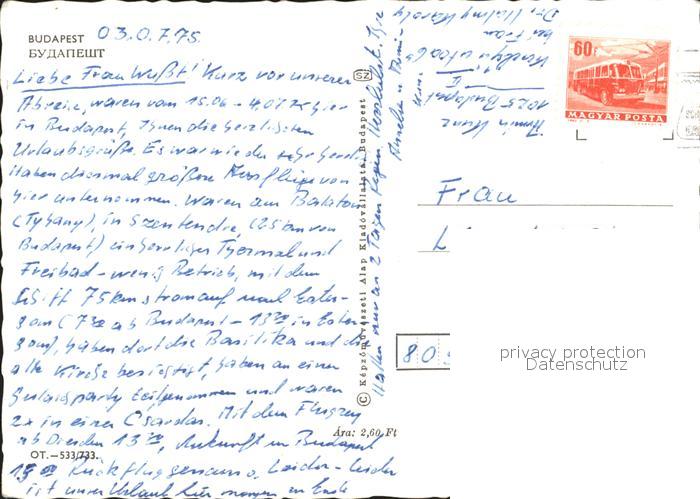 BUDAPEST 03.07.75
БУДАПЕШТ
Liebe Frau Wußt! Kurz vor unserer
Abreise, waren vom 15.06 - 4.07.75 hier
in Budapest, Ihnen die herzlichsten
Urlaubsgrüße. Es war wieder sehr
Haben diesmal größere Ausflüge von
hier unternommen. Waren am Balaton
(Tyhany), in Szentendre, (25 km von
Budapest) ein herrliches Thermal und
Freibad - wenig Betrieb, mit dem
Schiff 75 km stromauf nach Ester-
gom (7 ab Budapest - 13 in Ester-
gom), haben dort die Basilika und die
alte Kirche besichtigt, haben an einer
teilgenommen und waren
2x in einer Csardas. Mit dem Flugzeug
ab Dresden 13, Ankunft in Budapest
Rückflug genauso. Leider-leider
ist unser Urlaub hier morgen zu Ende
OT.—533/733.
SZ
© Képzőművészeti Alap Kiadóvállalata, Budapest
Ára: 2,60 Ft
Hatten nur an 2 Tagen Regen
Armin Kunz
1025 Budapest II
bei Frau
Dr. Károly
60f
MAGYAR POSTA
Frau
L
80
privacy protection
Datenschutz